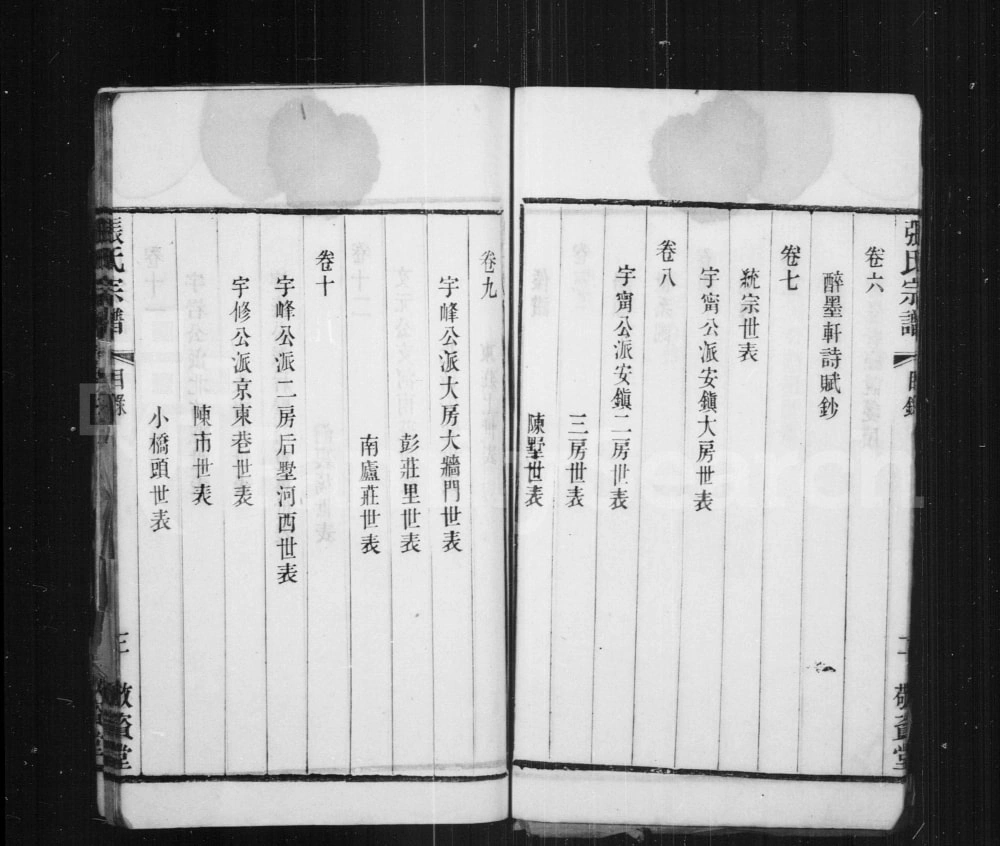 張氏宗譜 目錄 二 敬
卷六
醉墨軒詩賦鈔
卷七
統宗世表
宇甯公派安鎮大房世表
卷八
宇甯公派安鎮二房世表
三房世表
陳墅世表
卷九
宇峰公派大房大牆門世表
彭莊里世表
南廬莊世表
卷十
宇峰公派二房后墅河西世表
宇修公派京東巷世表
陳市世表
小橋頭世表
張氏宗譜 目錄 三